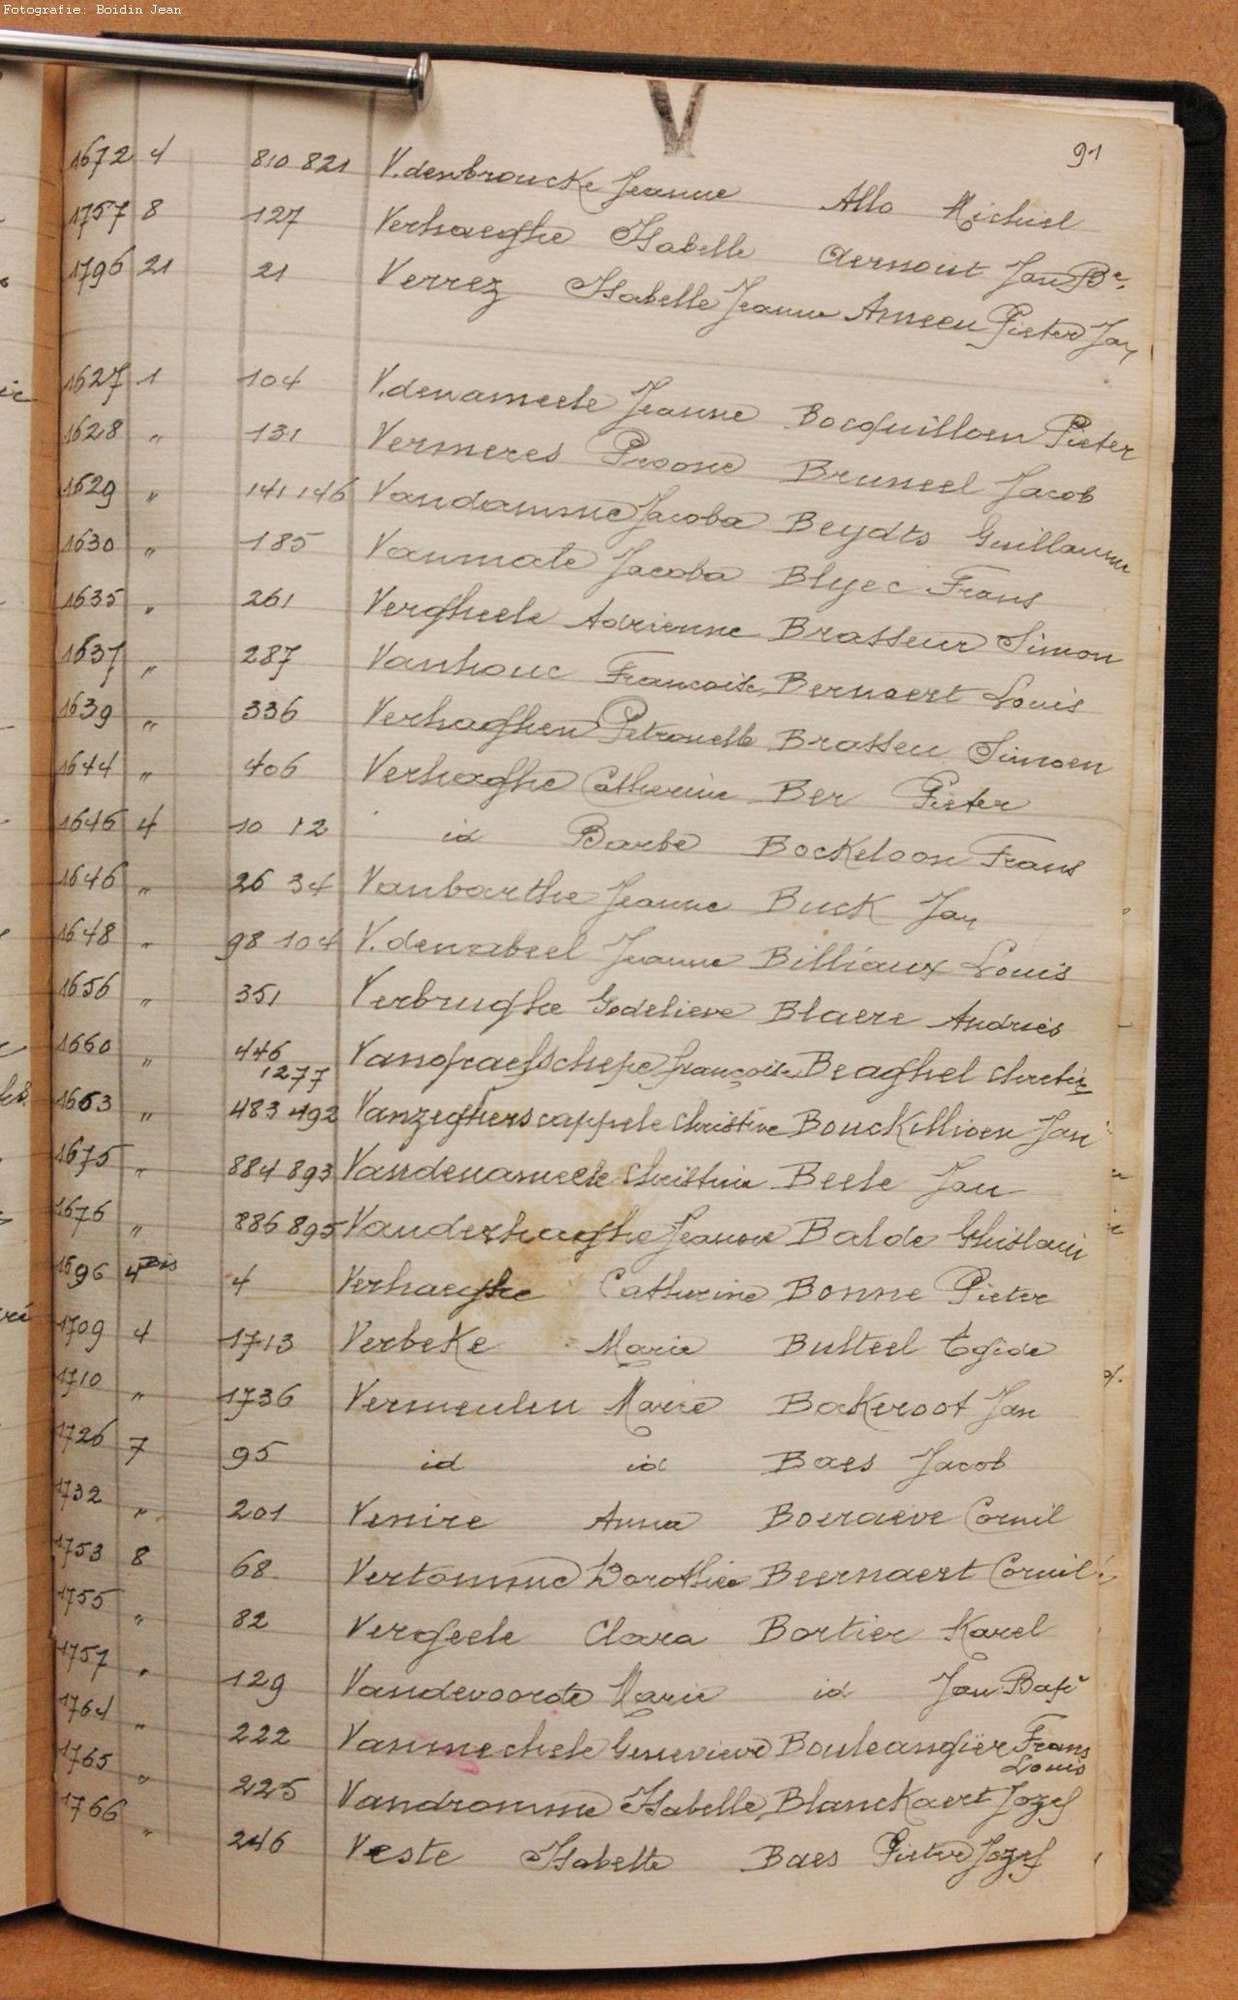 Fotografie: Boidin Jean
V
91
1672 4 810 821 V.denbroucke Jeanne Allo Michiel
1757 8 127 Verhaeghe Isabelle Aernout Jan Bte
1796 21 21 Verrez Isabelle Jeanne Ameeu Pieter Jan
1627 1 104 V.denameele Jeanne Bocquilloen Pieter
1628 " 131 Vermeres Proone Bruneel Jacob
1629 " 141 146 Vandamme Jacoba Beydts Guillaume
1630 " 185 Vanmate Jacoba Blyec Frans
1635 " 261 Vergheele Adrienne Brasseur Simon
1637 " 287 Vanhouc Francoise Bernaert Louis
1639 " 336 Verhaghen Petronelle Brasseu Simoen
1644 " 406 Verhaghe Catherine Ber Pieter
1646 4 10 12 id Barbe Bockeloon Frans
1646 " 26 34 Vanbarthe Jeanne Buck Jan
1648 " 98 104 V.denabeel Jeanne Billiaux Louis
1656 " 351 Verbrughe Godelieve Blaere Andries
1660 " 446 1277 Françoise Beaghel
1663 " 483 492 Vanzegherscappele Christine Bouckillioen Jan
1675 " 884 893 Vandenameele Christine Beele Jan
1676 " 886 895 Vanderhaghe Jeanne Balde Ghislain
1696 4bis 4 Verhaeghe Catherine Bonne Pieter
1709 4 1713 Verbeke Marie Bulteel Egide
1710 " 1736 Vermeulen Marie Bakeroot Jan
1726 7 95 id id Baes Jacob
1732 " 201 Venire Anna Boeraeve Cornil
1753 8 68 Vertomme Dorothée Beernaert Cornil
1755 " 82 Vergeele Clara Bortier Karel
1757 " 129 Vandevoorde Marie id Jan Bapt
1764 " 222 Vanmechele Genevieve Bouleangier Frans
Louis
1765 " 225 Vandromme Isabelle Blanckaert Jozef
1766 " 246 Veste Isabelle Baes Pieter Jozef